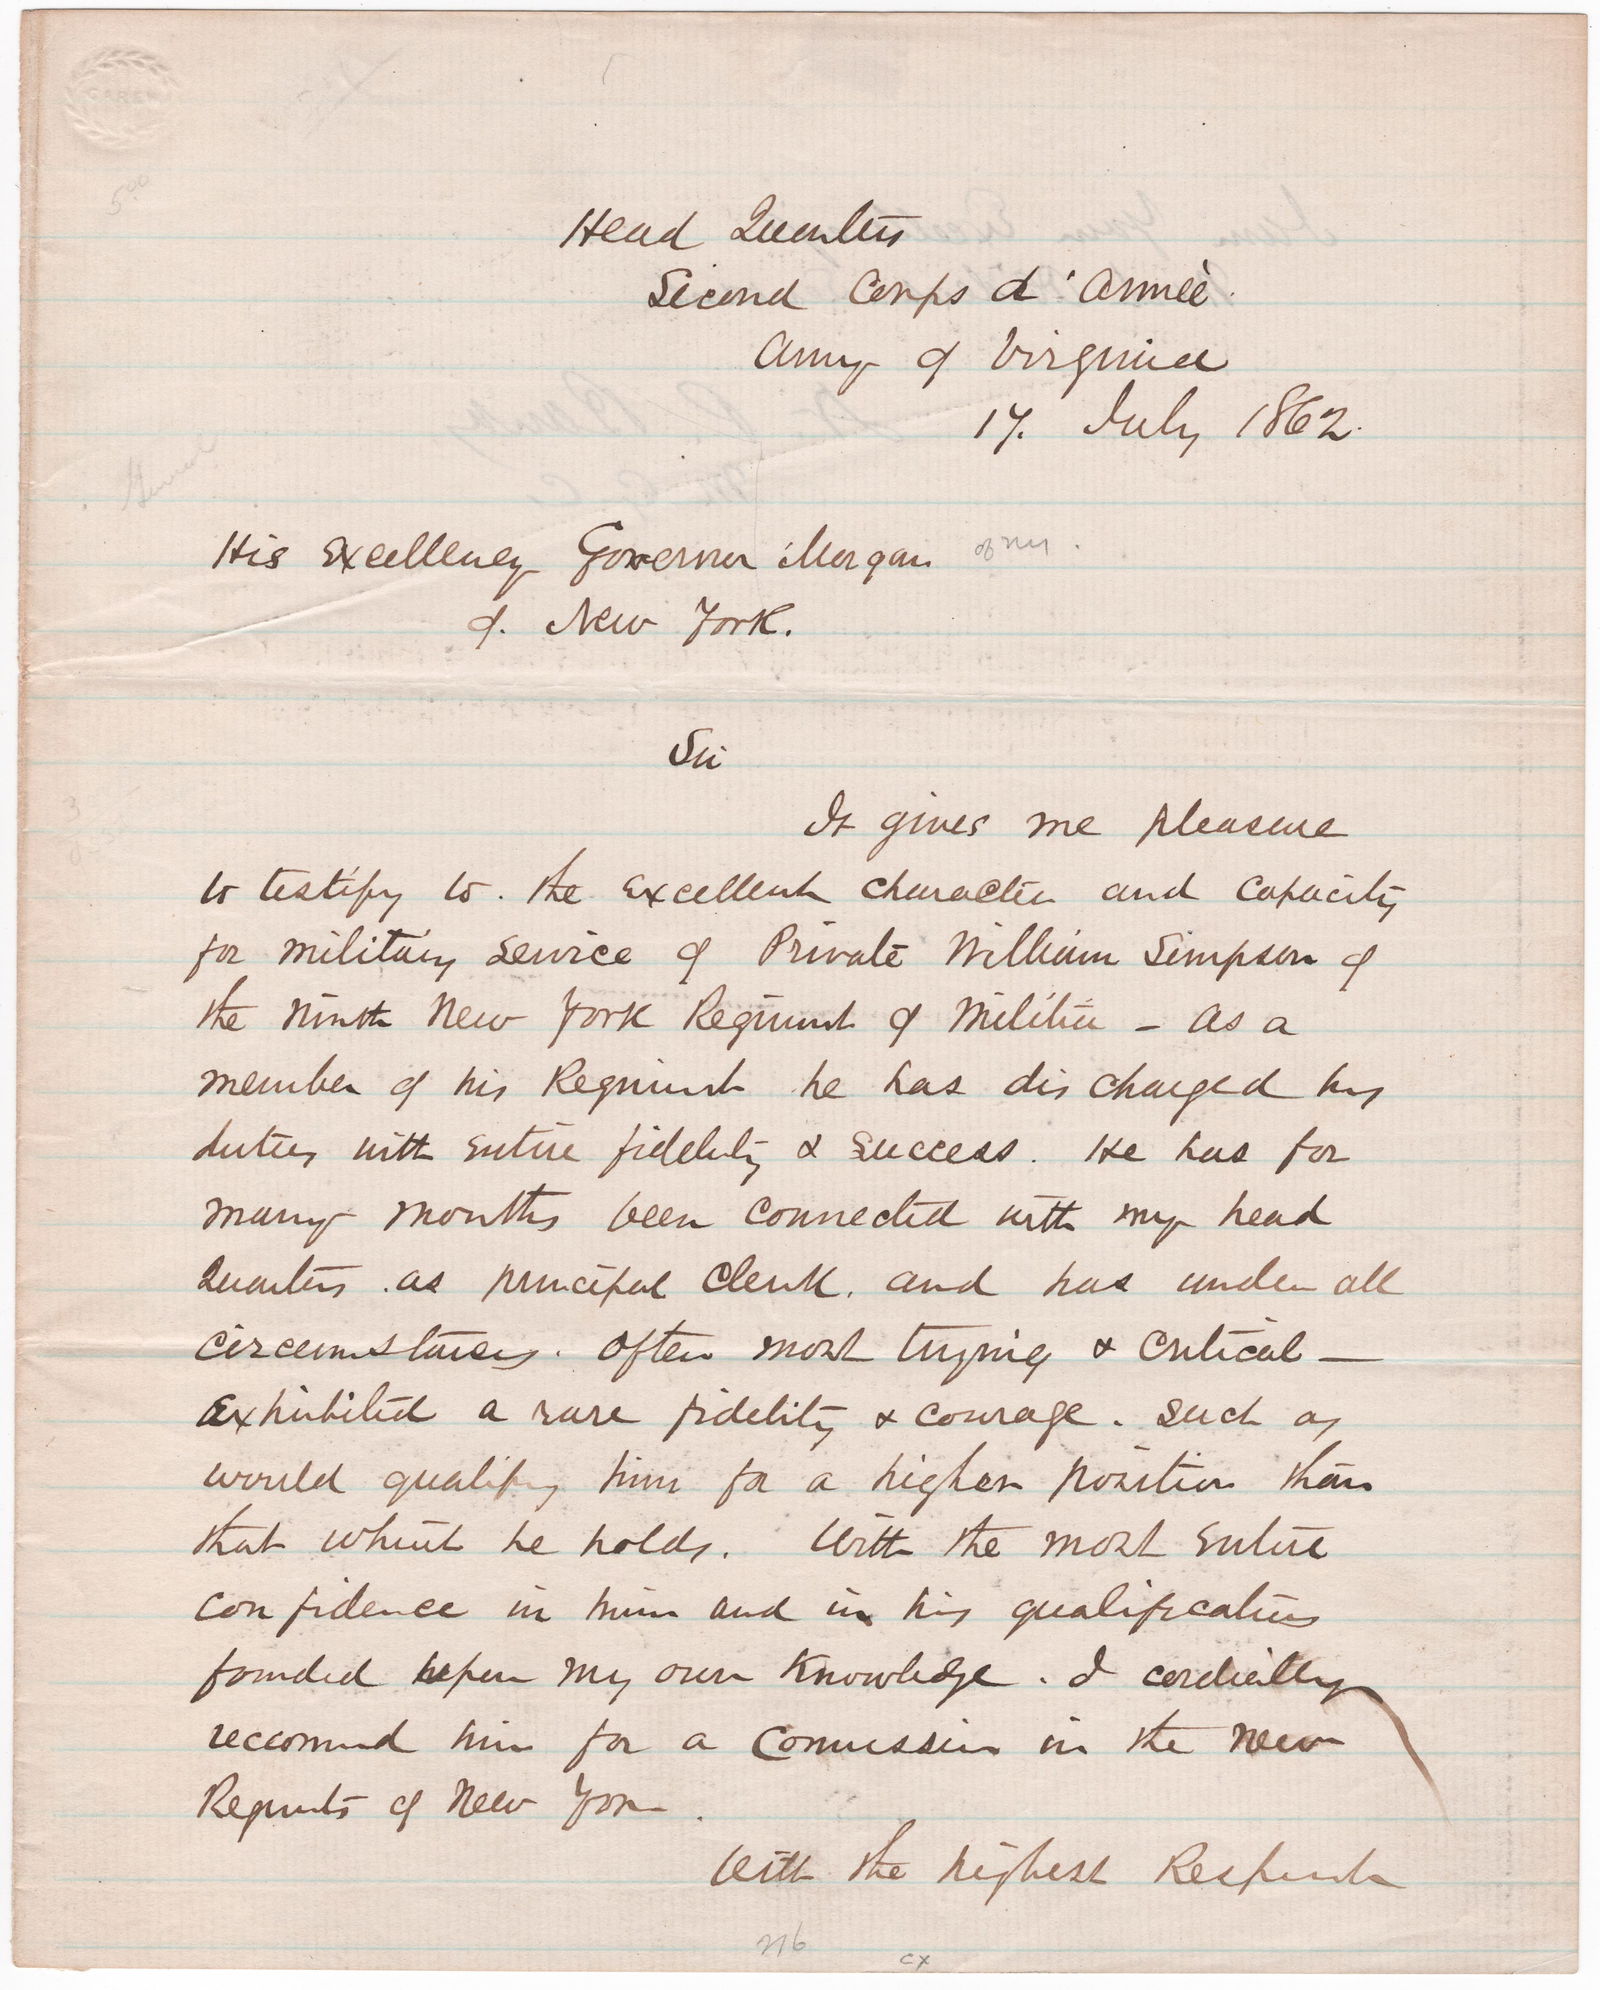 Head Quarters
Second Corps d'Armeè.
Army of Virginia
17. July 1862.
His Excellency Governor Morgan of NY.
of. New York.
Sir
It gives me pleasure
to testify to. the excellent character and capacity
for military service of Private William Simpson of
the Ninth New York Regiment of Militia – As a
member of his Regiment he has discharged his
duties with entire fidelity & success. He has for
many months been connected with my head
Quarters. as principal Clerk. and has under all
circumstances. often most trying & critical –
exhibited a rare fidelity & courage. such as
would qualify him for a higher position than
that which he holds. With the most entire
confidence in him and in his qualifications
founded upon my own knowledge. I cordially
reccomend him for a Commission in the new
Regments of New York.
With the highest Respect
276
cx
5.00
General